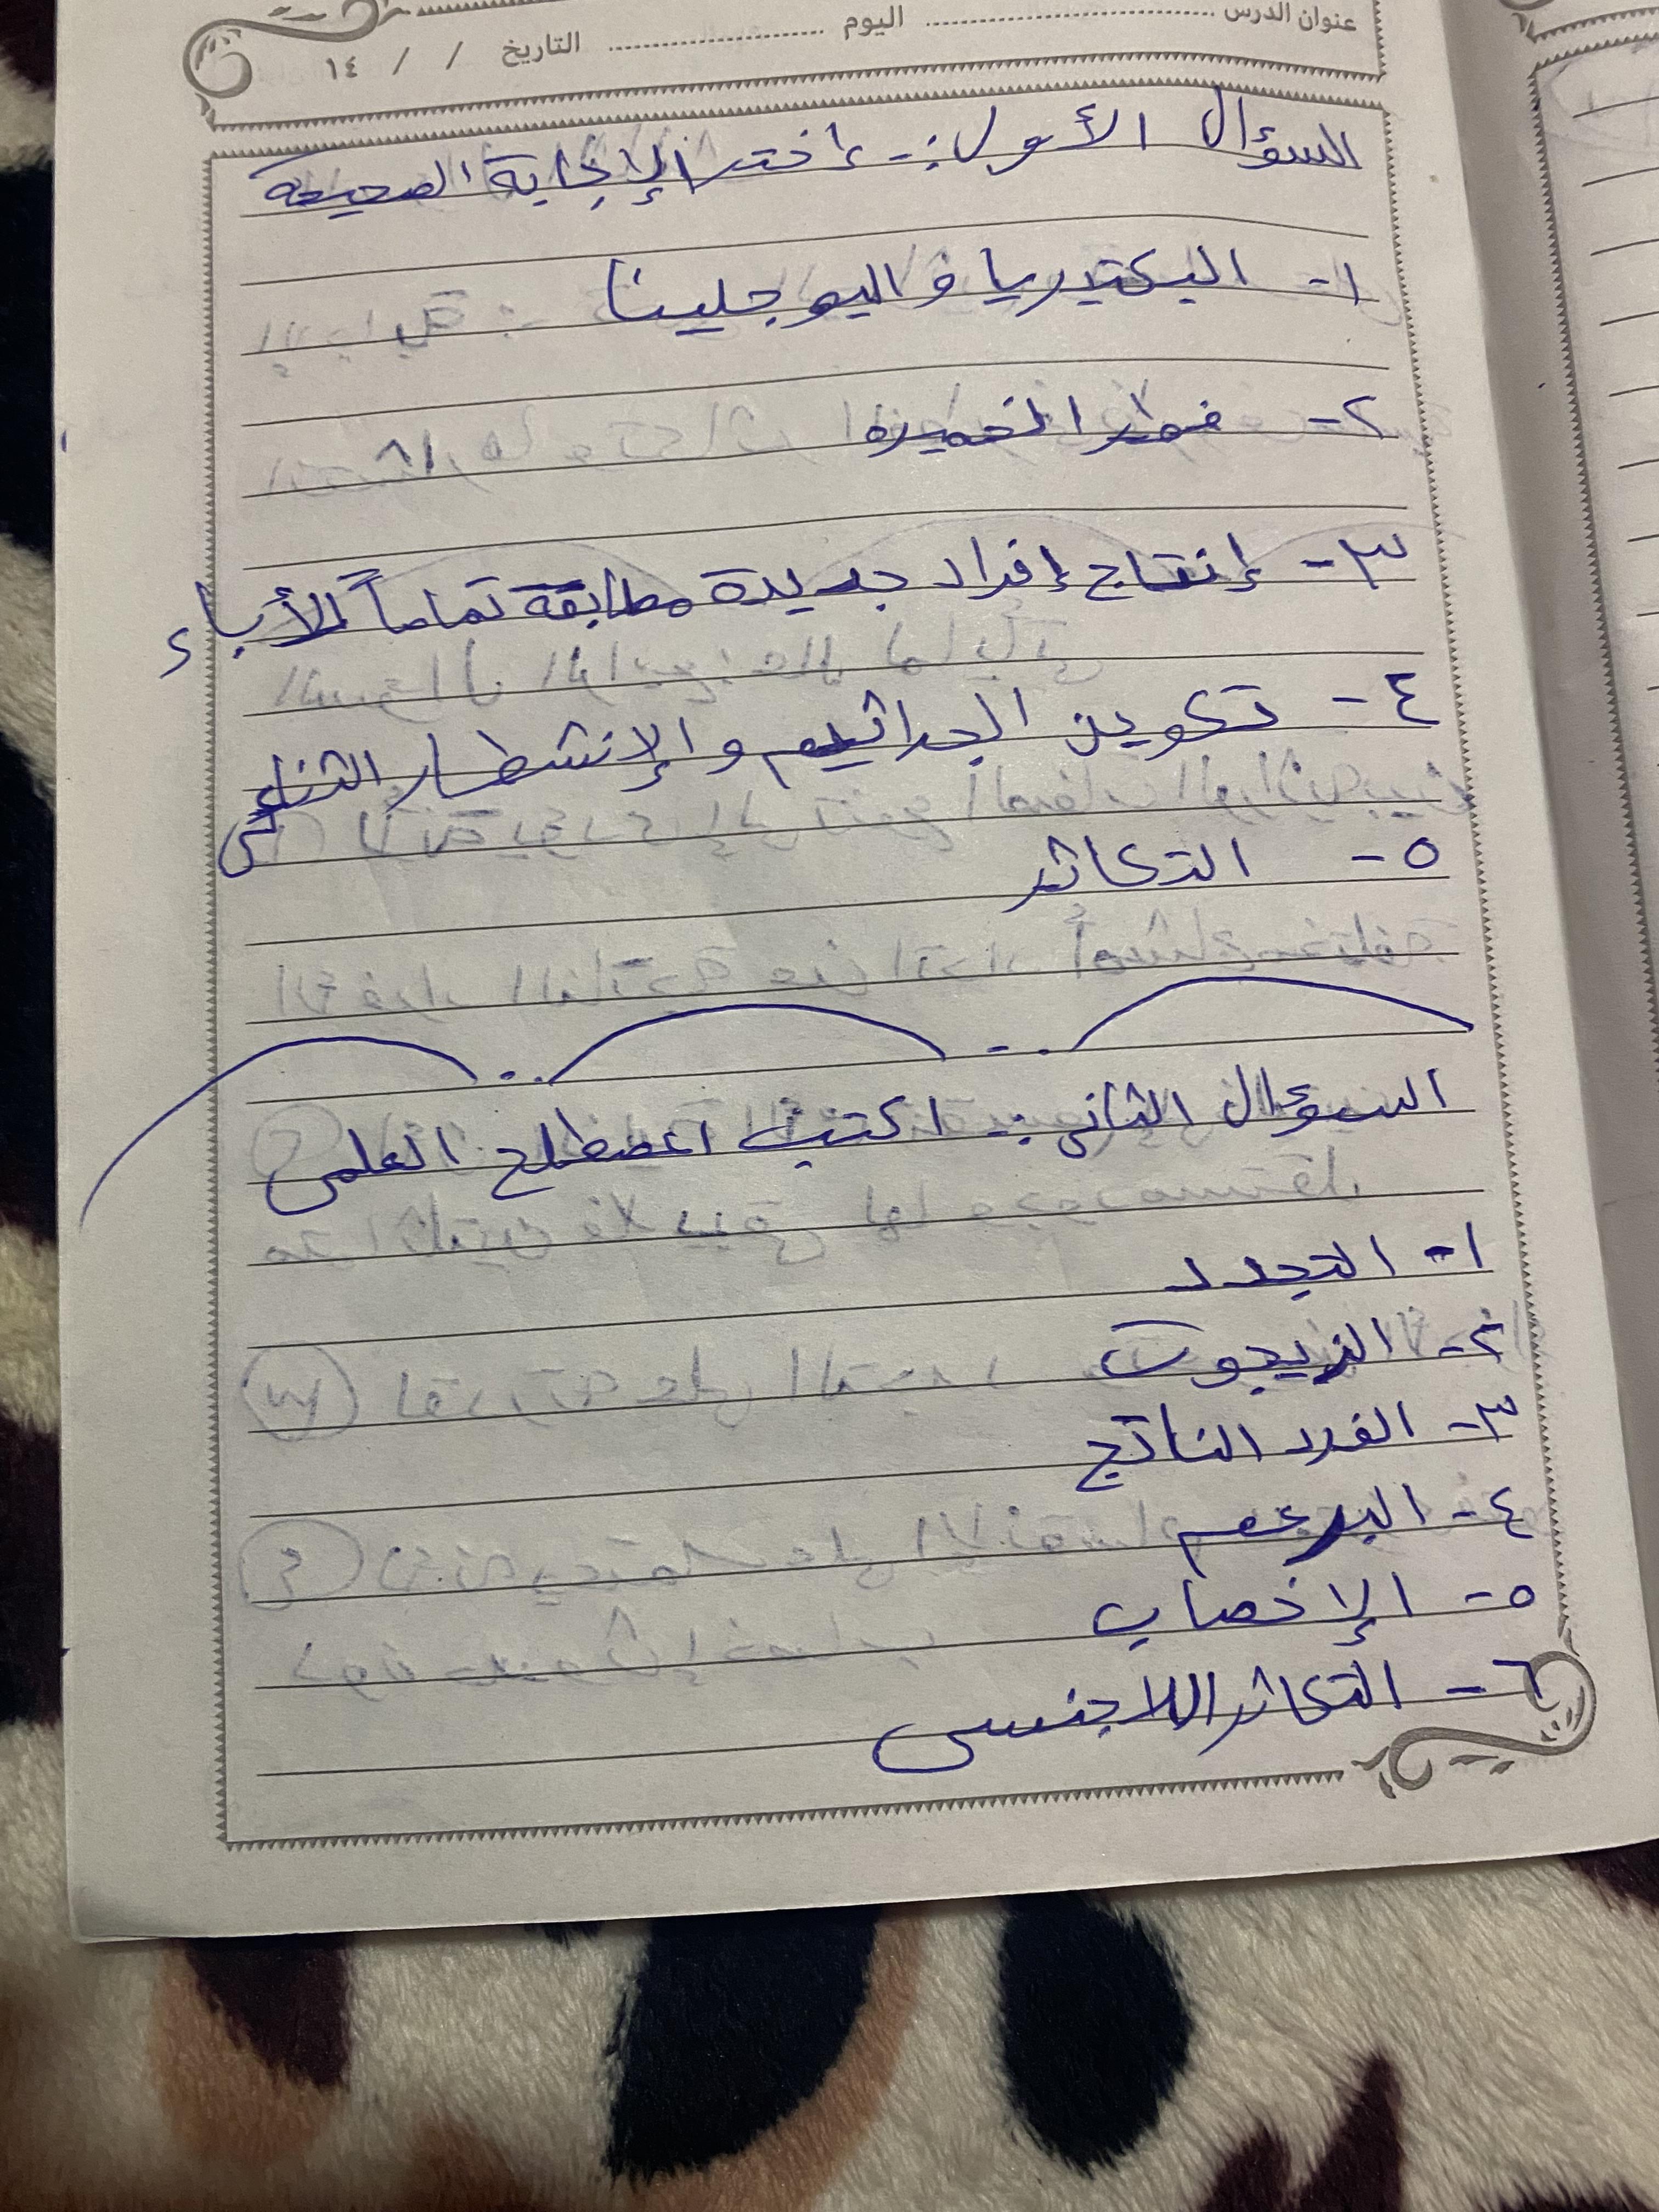 عنوان الدرس ........................ اليوم .................. التاريخ / / ١٤
السؤال الأول :- اختر الإجابة الصحيحة
١- البكتيريا واليوجلينا
٢- فطر الخميرة
٣- إنتاج إفراد جديدة مطابقة تماماً للأباء
٤- تكوين الجراثيم والإنشطار الثنائى
٥- التكاثر
السؤال الثانى :- اكتب المصطلح العلمى
١- التجدد
٢- الزيجوت
٣- الفرد الناتج
٤- البرعم
٥- الإخصاب
٦- التكاثر اللاجنسى